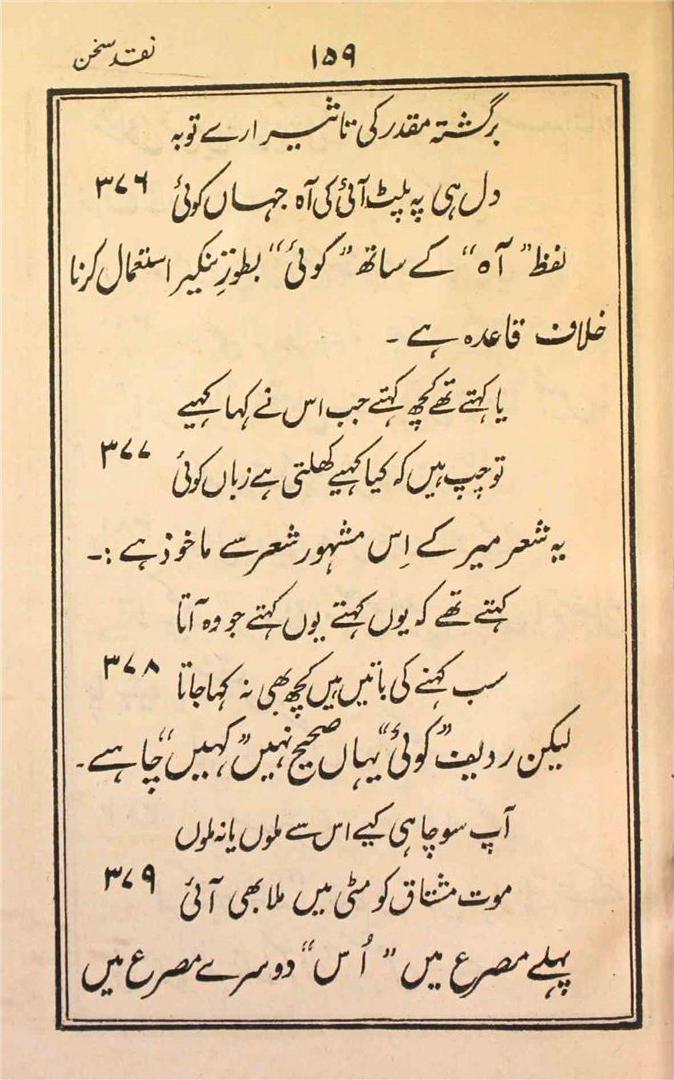 نقد سخن
۱۵۹
برگشتہ مقدر کی تاثیر ارے توبہ
دل ہی پہ پلٹ آئی کی آہ جہاں کوئی ۳۷۶
لفظ ”آہ“ کے ساتھ ”کوئی“ بطورِ تنکیر استعمال کرنا
خلاف قاعدہ ہے ۔
یا کہتے تھے کچھ کہتے جب اس نے کہا کہیے
تو چپ ہیں کہ کیا کہیے کھلتی ہے زباں کوئی ۳۷۷
یہ شعر میر کے اِس مشہور شعر سے ماخوذ ہے :۔
کہتے تھے کہ یوں کہتے یوں کہتے جو وہ آتا
سب کہنے کی باتیں ہیں کچھ بھی نہ کہا جاتا ۳۷۸
لیکن ردیف ”کوئی“ یہاں صحیح نہیں ”کہیں“ چاہے ۔
آپ سوچا ہی کیے اس سے ملوں یا نہ ملوں
موت مشتاق کو مٹی میں ملا بھی آئی ۳۷۹
پہلے مصرع میں ”اُس“ دوسرے مصرع میں